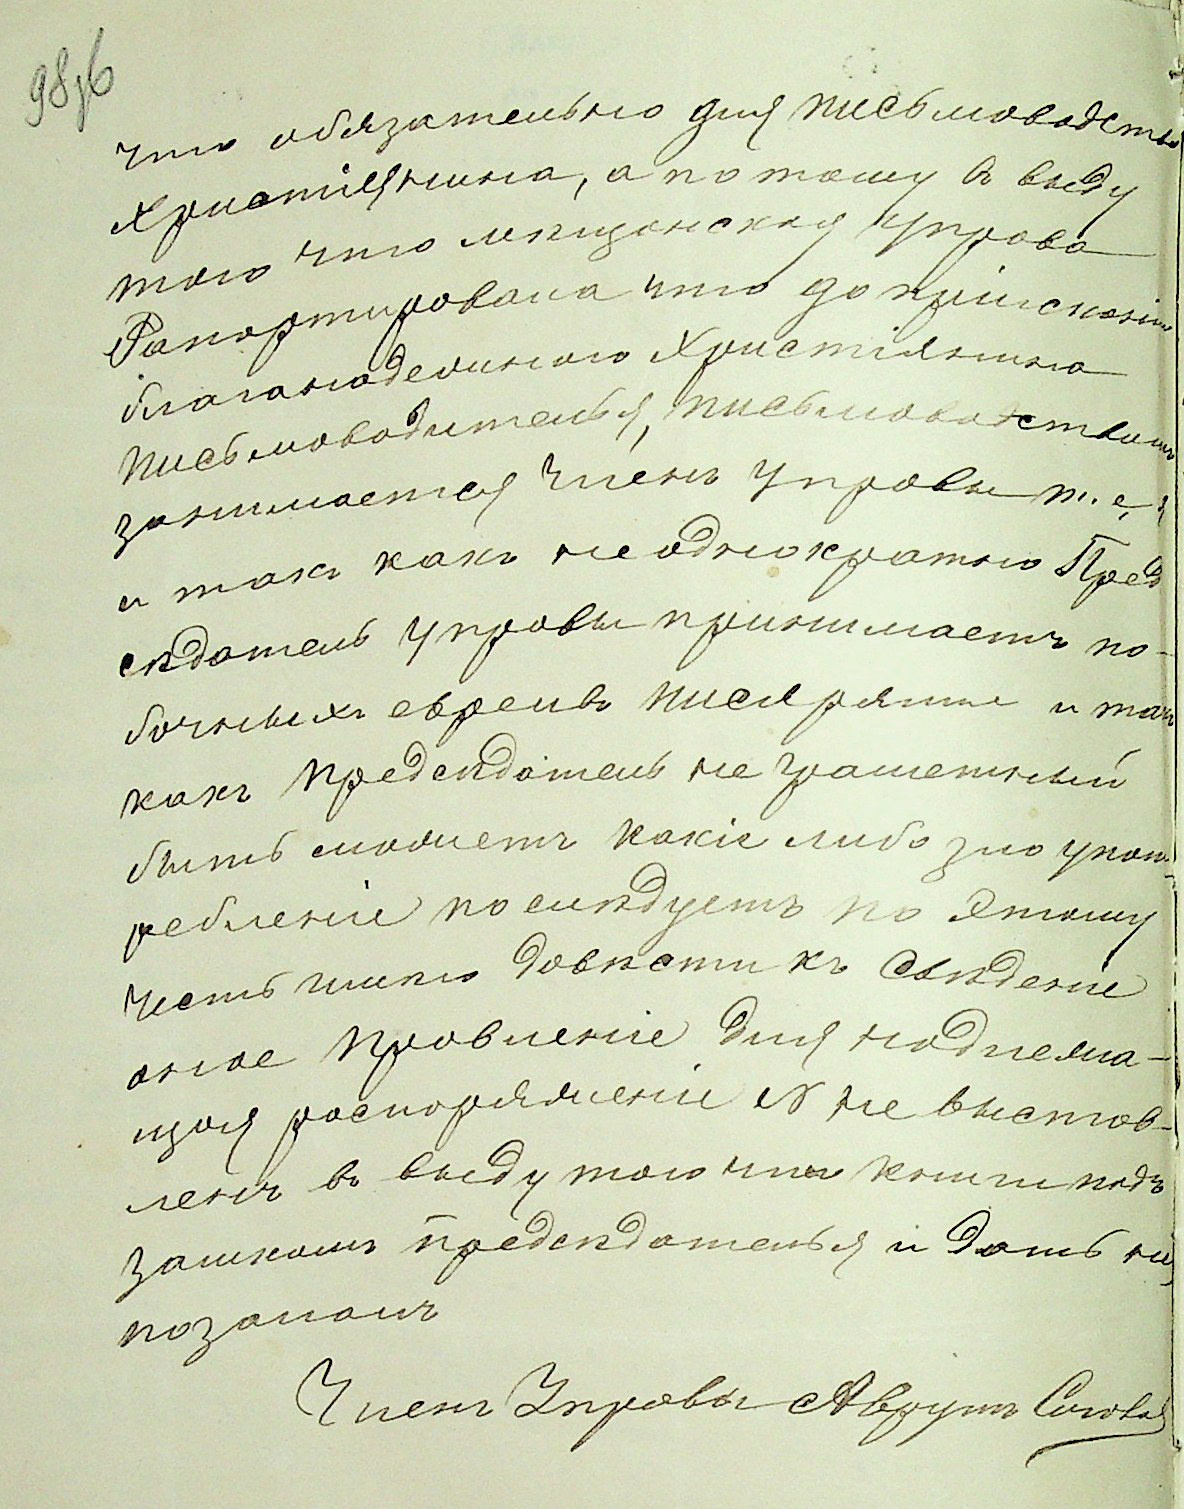 98об
что обязательно для письмоводства
Христіянина, а по тому в виду
того что мещанская управа
Рапортировала что до пріисканія
благонодежного Христіянина
письмоводителья, письмоводствомъ
занимается Членъ управы т. е. я
и такъ какъ не однократно Пред
сѣдатель управы принимаетъ по-
бочныхъ евреивъ писярями и такъ
какъ предсѣдатель не грамет‌ный
быть можетъ какіе либо зло упот
ребленіе последуетъ по этому
Честь имею довѣсти къ Свѣденіе
оное провленіе для нодлежа-
щоя распоряженіи N не выстав-
ленъ в виду того что книги подъ
замкомъ предсѣдательа и дать не
позалалъ
Членъ Управы Аврумъ